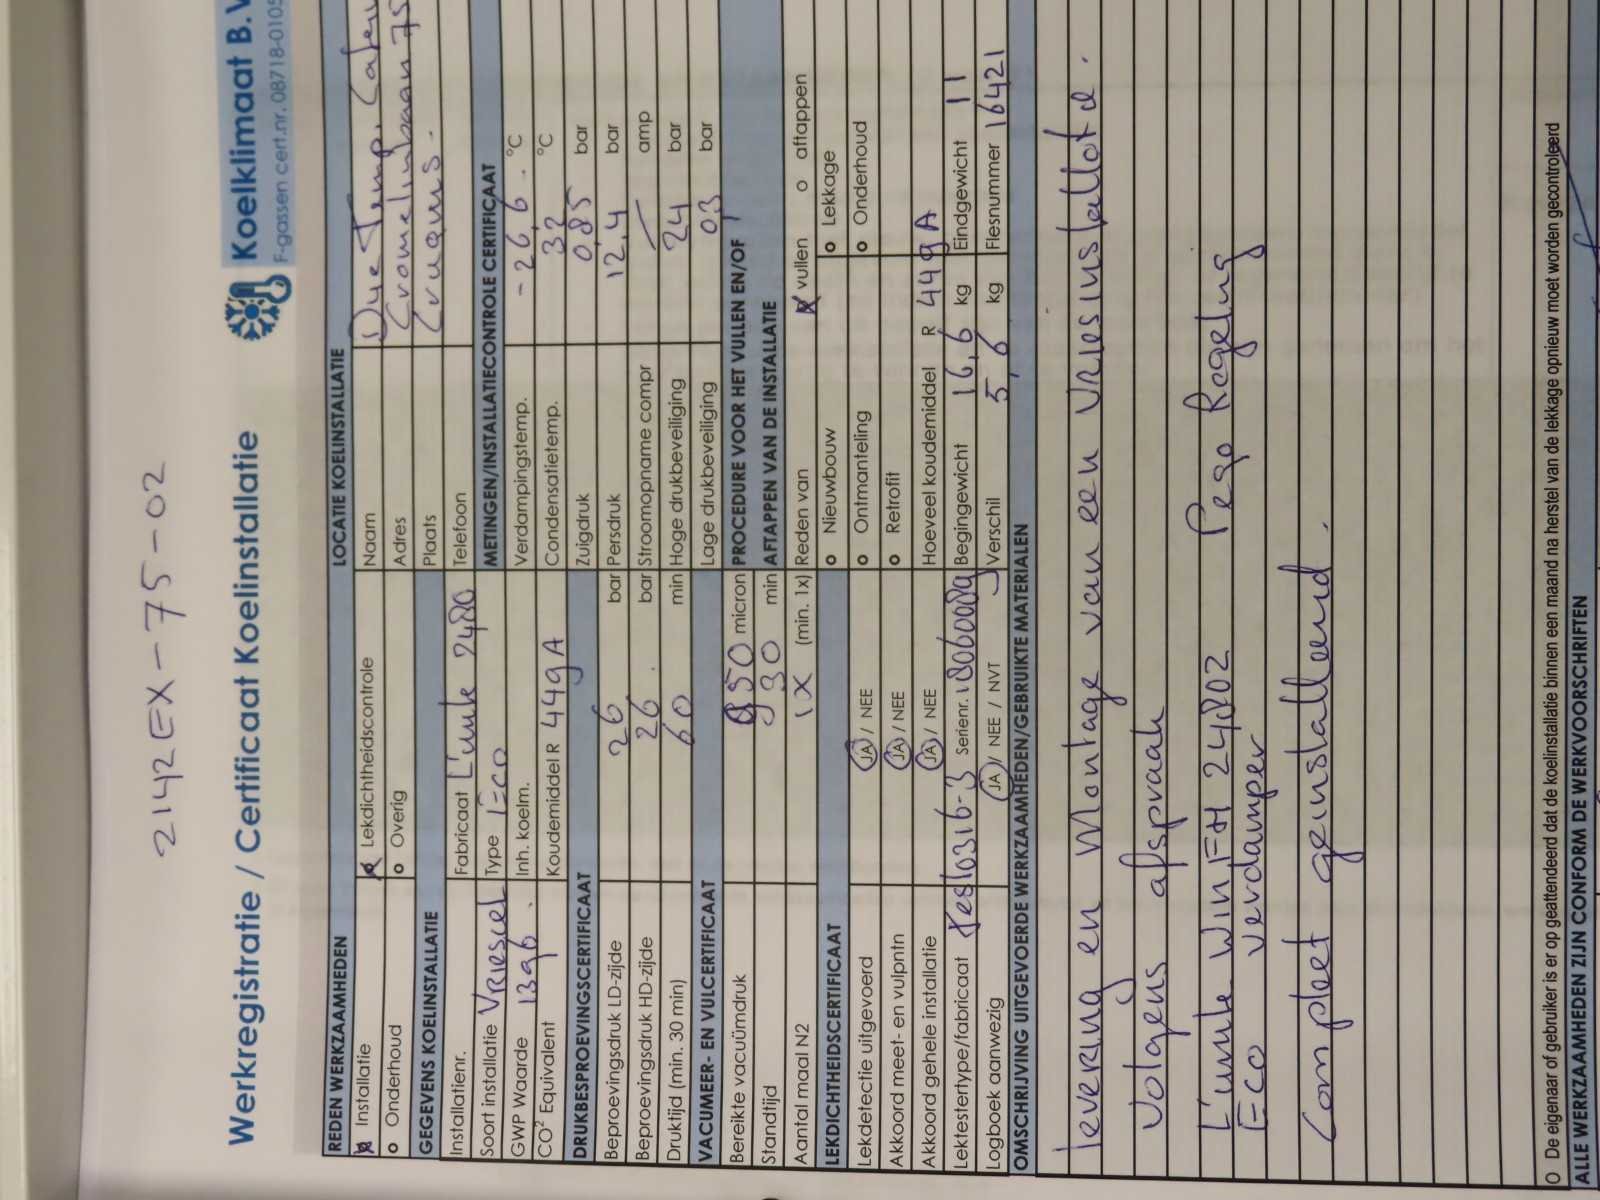 2142EX-75-02
Werkregistratie / Certificaat Koelinstallatie
Koelklimaat B.V
F-gassen cert.nr. 08718-0105
REDEN WERKZAAMHEDEN
Installatie
Lekdichtheidscontrole
o Onderhoud
o Overig
LOCATIE KOELINSTALLATIE
Naam Due Temp. Cater
Adres Cromelinbaan 75
Plaats Cruquius.
Telefoon
GEGEVENS KOELINSTALLATIE
Installatienr.
Fabricaat L'unite 2480
Soort installatie Vriescel
Type ECO
GWP Waarde 1396.
Inh. koelm.
CO2 Equivalent
Koudemiddel R 449A
METINGEN/INSTALLATIECONTROLE CERTIFICAAT
Verdampingstemp. -26,6. °C
Condensatietemp. 32 °C
Zuigdruk 0,85 bar
Persdruk 12,4 bar
Stroomopname compr / amp
Hoge drukbeveiliging 24 bar
Lage drukbeveiliging 0,3 bar
DRUKBESPROEVINGSCERTIFICAAT
Beproevingsdruk LD-zijde 26 bar
Beproevingsdruk HD-zijde 26. bar
Druktijd (min. 30 min) 60 min
VACUMEER- EN VULCERTIFICAAT
Bereikte vacuümdruk 950 micron
Standtijd 30 min
Aantal maal N2 1x (min. 1x)
PROCEDURE VOOR HET VULLEN EN/OF
AFTAPPEN VAN DE INSTALLATIE
Reden van vullen o aftappen
o Nieuwbouw o Lekkage
o Ontmanteling o Onderhoud
o Retrofit
Hoeveel koudemiddel R 449A
Begingewicht 16,6 kg Eindgewicht 11
Verschil 5,6 kg Flesnummer 16421
LEKDICHTHEIDSCERTIFICAAT
Lekdetectie uitgevoerd JA / NEE
Akkoord meet- en vulpntn JA / NEE
Akkoord gehele installatie JA / NEE
Lektestertype/fabricaat Testo316-3 Serienr. 18060089
Logboek aanwezig JA / NEE / NVT
OMSCHRIJVING UITGEVOERDE WERKZAAMHEDEN/GEBRUIKTE MATERIALEN
levering en Montage van een Vriesinstallatie.
volgens afspraak
L'unite WinFH 2480Z Pego Regeling
Eco verdamper
Compleet geinstalleerd.
O De eigenaar of gebruiker is er op geattendeerd dat de koelinstallatie binnen een maand na herstel van de lekkage opnieuw moet worden gecontroleerd
ALLE WERKZAAMHEDEN ZIJN CONFORM DE WERKVOORSCHRIFTEN